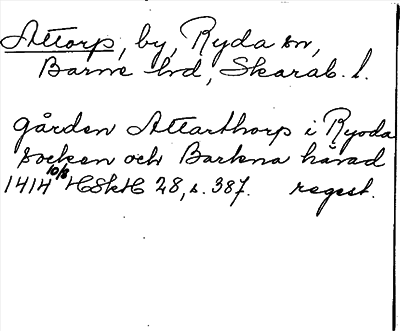 Attorp, by, Ryda sn,
Barne hd, Skarab. l.
gården Attarthorp i Ryoda
socken och Barkna härad
1414 10/8 HSkH 28, s. 387. regest.